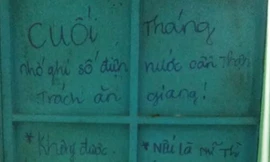 CUỐI Tháng
nhớ ghi số điện nước cẩn thận
Trách ăn gian!
* Không được.
* Nếu là mĩ Thì